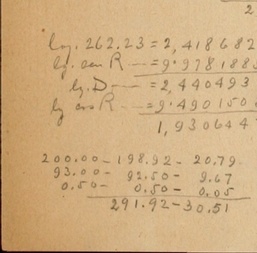 2
log. 262.23 = 2,418682
lg. sen R — = 9.978188
lg. D — = 2,440493
lg cos R — = 9.490150
1,930644
200.00 - 198.92 - 20.79
93.00 - 92.50 - 9.67
0.50 - 0.50 - 0.05
291.92 - 30.51